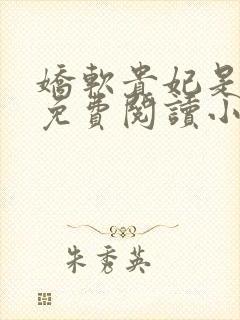 嬌軟貴妃是
免費閱讀小
朱秀英